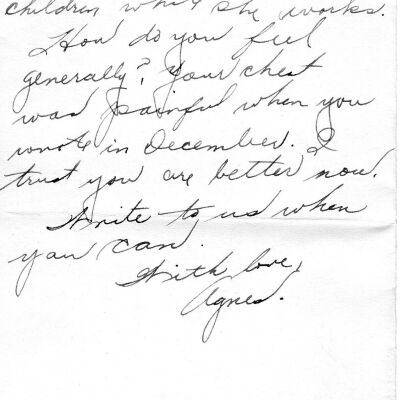 children while she works.
How do you feel
generally? Your chest
was painful when you
wrote in December. I
trust you are better now.
Write to us when
you can.
With love,
Agnes.